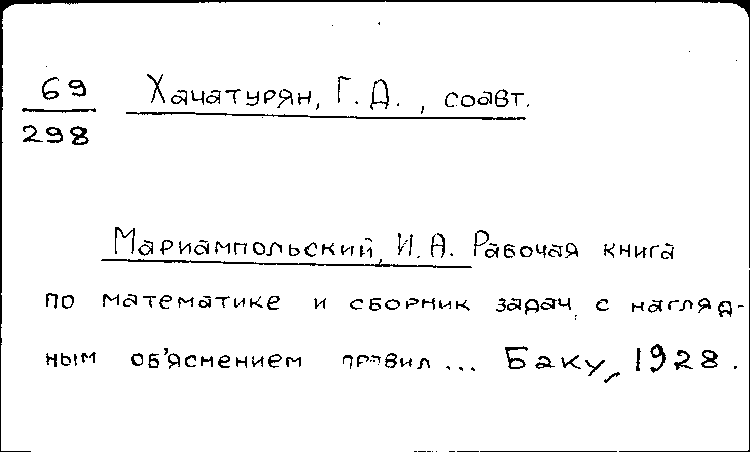 69 Хачатурян, Г. Д., соавт.
298
Мариампольский, И. А. Рабочая книга
по математике и сборник задач, с нагляд-
ным об'яснением правил... Баку, 1928.